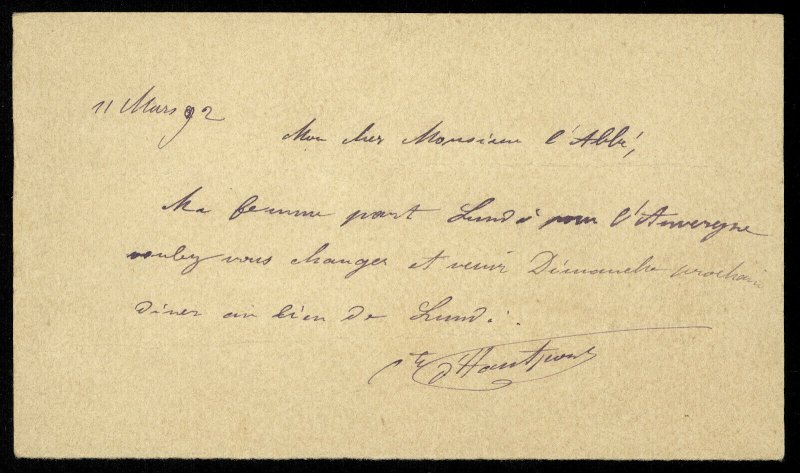 11 Mars 92
Mon cher Monsieur l'Abbé,
Ma femme part Lundi pour l'Auvergne
voulez vous changer et venir Dimanche prochain
diner au lieu de Lundi.
Cte d'Hautpoul